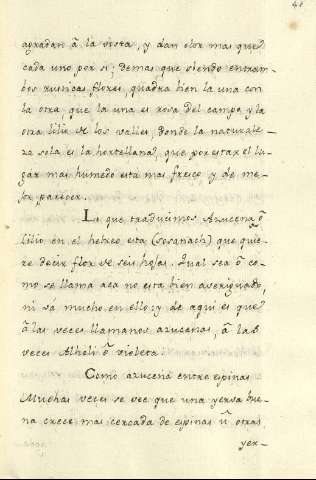 41
agradan â la vista, y dan olor mas que
cada uno por si; demas que siendo entram-
bos rusticas flores, quadra bien la una con
la otra, que la una es rosa del campo, y la
otra lilio de los valles, donde la naturale-
za sola es la hortellana, que por estar el lu-
gar mas humedo está mas fresco, y de me-
jor parecer.
Lo que traducimos Azucena ô
lilio en el hebreo está (sosanach) que quie-
re decir flor de seis hojas. Qual sea ô co-
mo se llama acá no está bien averiguado,
ni vá mucho en ello: y de aqui es que
â las veces llamamos azucenas, â las
veces Alheli ô violeta.
Como azucena entre espinas
Muchas veces se vee que una yerva bue-
na crece mas cercada de espinas û otras
yer-